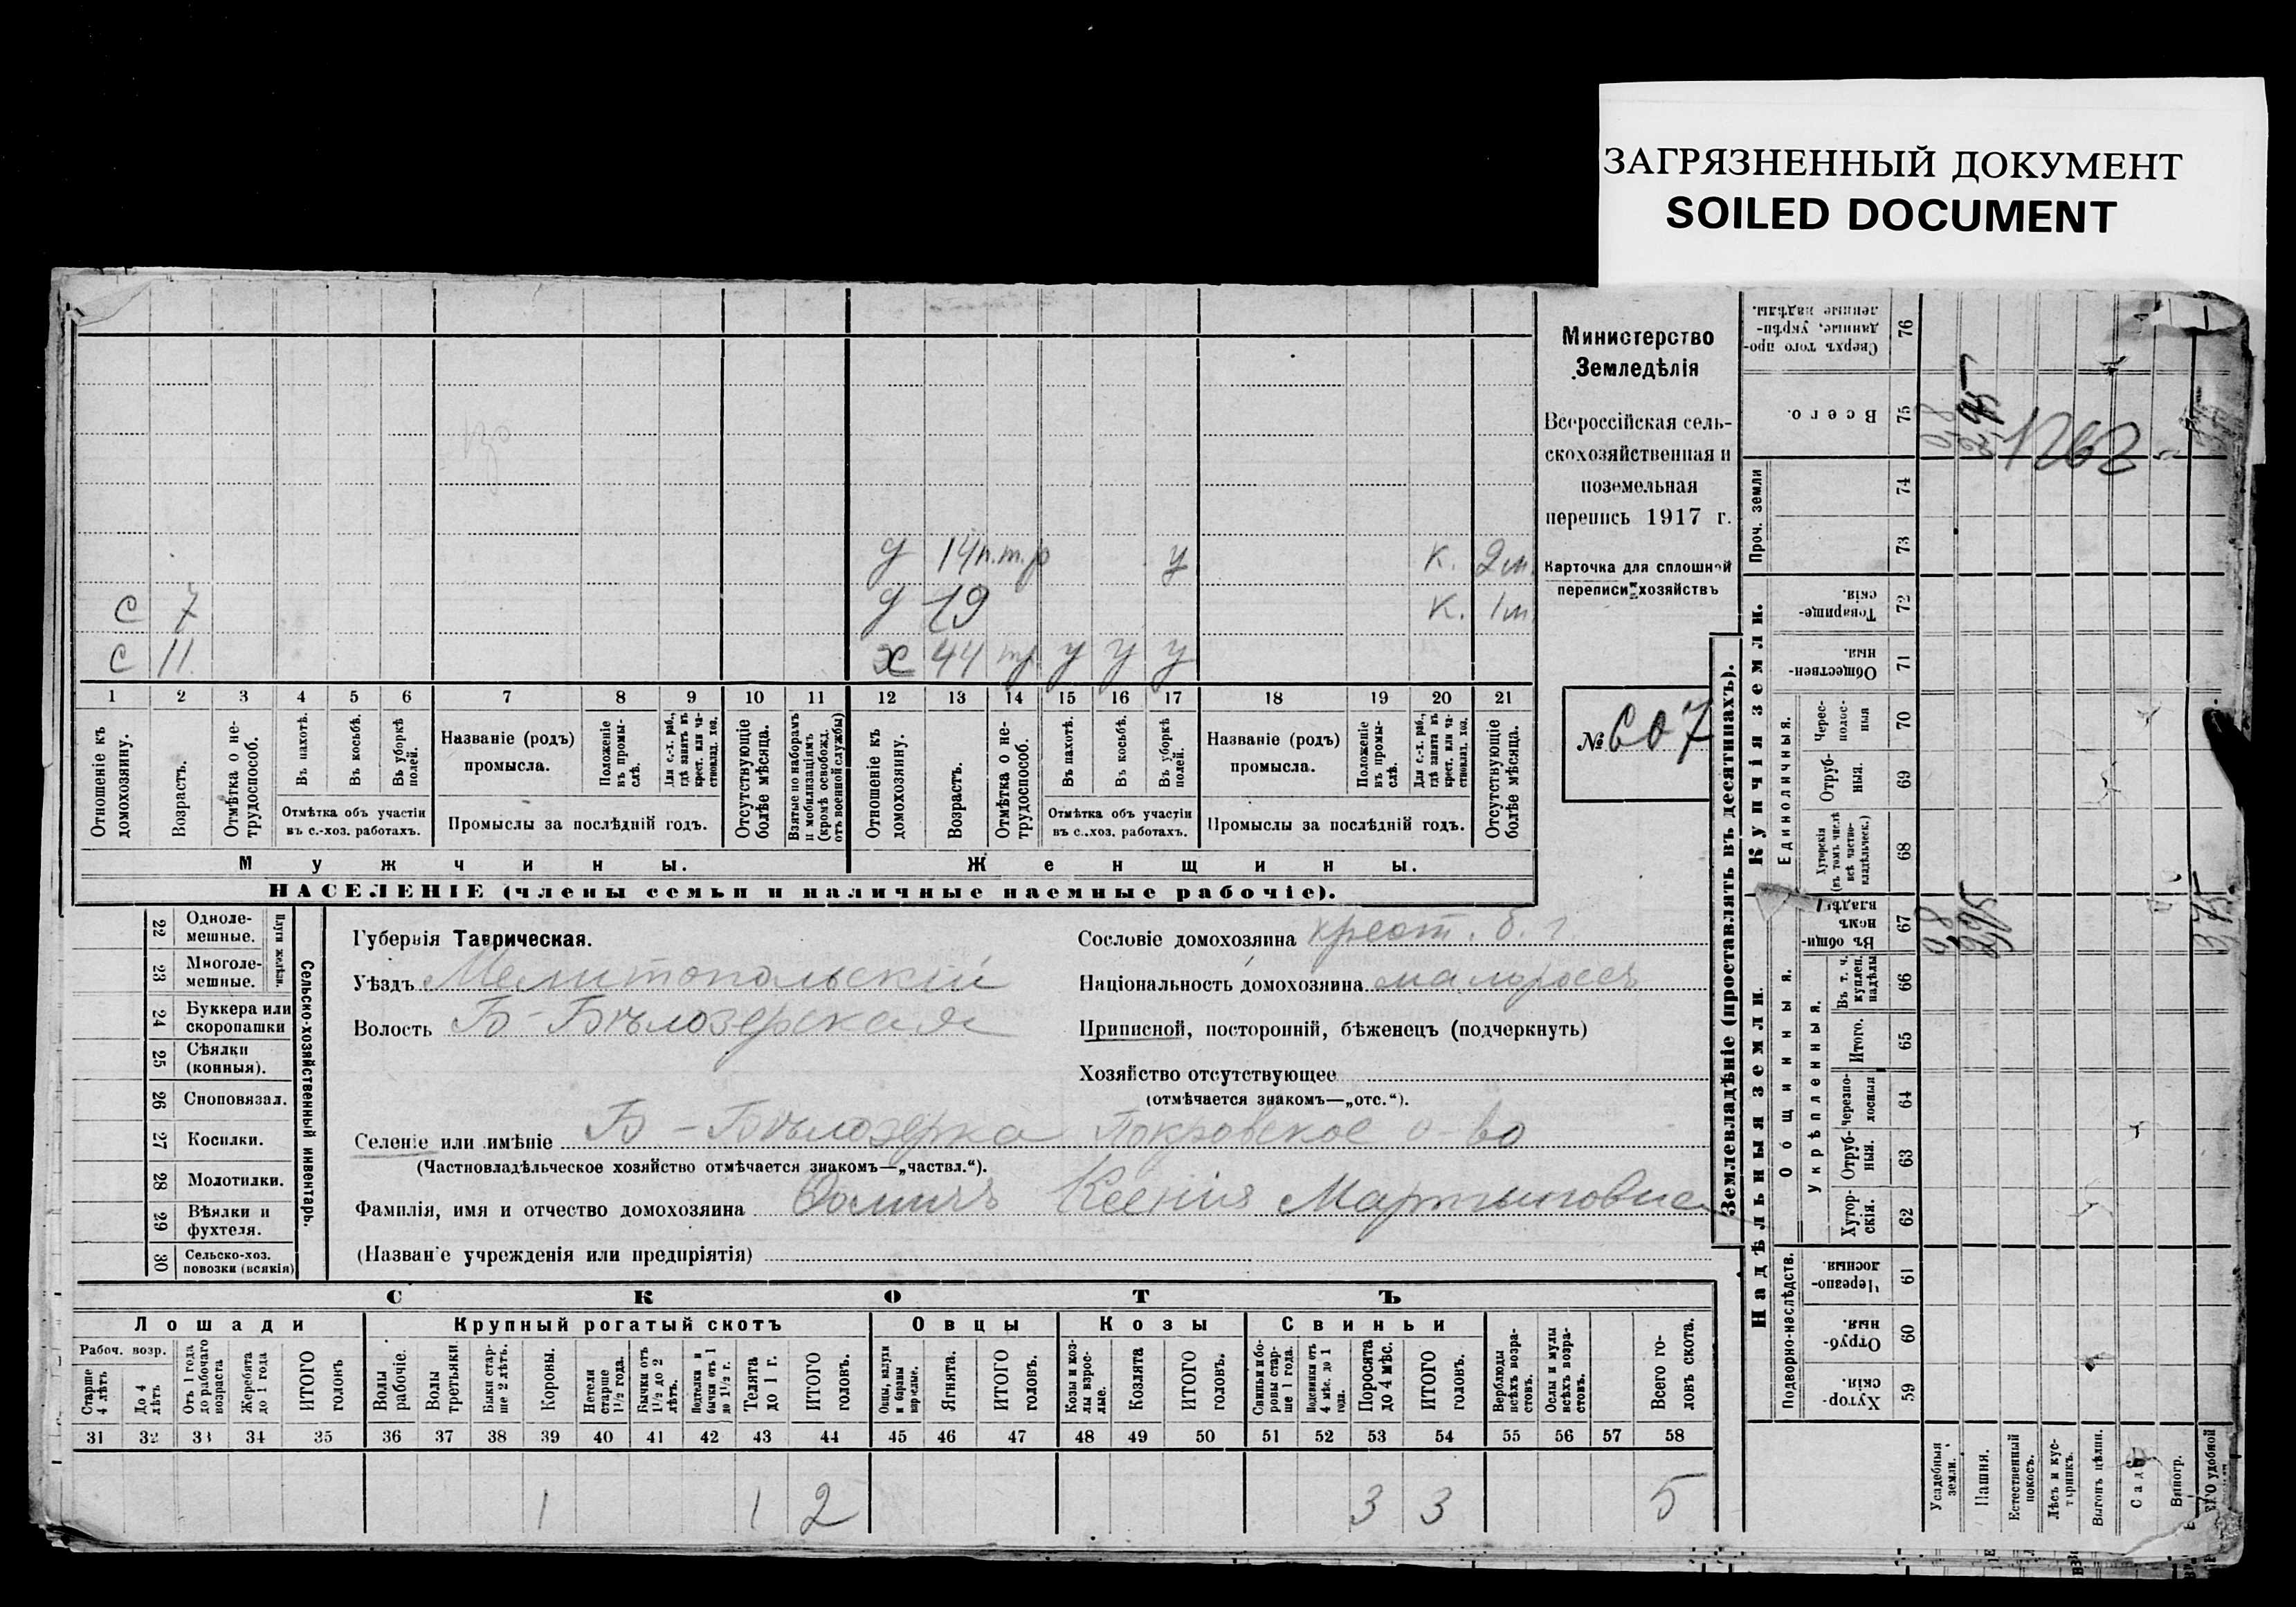 ЗАГРЯЗНЕННЫЙ ДОКУМЕНТ
SOILED DOCUMENT
Министерство
Земледѣлія
Всероссійская сель-
скохозяйственная и
поземельная
перепись 1917 г.
Карточка для сплошной
переписи хозяйствъ
№ 607
д 14 п.т.р у к. 2 м.
с 7 д 19 к. 1 м.
с 11 х 44 у у у
1 2 3 4 5 6 7 8 9 10 11 12 13 14 15 16 17 18 19 20 21
Отношеніе къ домохозяину.
Возрастъ.
Отмѣтка о не-трудоспособ.
Въ пахотѣ.
Въ косьбѣ.
Въ уборкѣ полей.
Отмѣтка объ участіи
въ с.-хоз. работахъ.
Названіе (родъ)
промысла.
Положеніе въ промы-слѣ.
Для с.-х. раб., гдѣ занятъ въ крест. или ча-ствовлад. хоз.
Промыслы за послѣдній годъ.
Отсутствующіе болѣе мѣсяца.
Взятые по наборамъ и мобилизаціямъ (кромѣ освобожд. отъ военной службы)
Отношеніе къ домохозяину.
Возрастъ.
Отмѣтка о не-трудоспособ.
Въ пахотѣ.
Въ косьбѣ.
Въ уборкѣ полей.
Отмѣтка объ участіи
въ с.-хоз. работахъ.
Названіе (родъ)
промысла.
Положеніе въ промы-слѣ.
Для с.-х. раб., гдѣ занята въ крест. или ча-ствовлад. хоз.
Промыслы за послѣдній годъ.
Отсутствующіе болѣе мѣсяца.
Мужчины.
Женщины.
НАСЕЛЕНІЕ (члены семьи и наличные наемные рабочіе).
22 Одноле-мешные.
23 Многоле-мешные.
Плуги желѣзн.
24 Буккера или скоропашки
25 Сѣялки (конныя).
26 Сноповязал.
27 Косилки.
28 Молотилки.
29 Вѣялки и фухтеля.
30 Сельско-хоз. повозки (всякія)
Сельско-хозяйственный инвентарь.
Губернія Таврическая.
Уѣздъ Мелитопольскій
Волость Б-Бѣлозерская
Сословіе домохозяина крест. б. г.
Національность домохозяина малороссъ
Приписной, посторонній, бѣженецъ (подчеркнуть)
Хозяйство отсутствующее
(отмѣчается знакомъ—„отс.“).
Селеніе или имѣніе Б-Бѣлозерка Покровское о-во
(Частновладѣльческое хозяйство отмѣчается знакомъ—„частвл.“).
Фамилія, имя и отчество домохозяина Ксенія Мартыновна
(Названіе учрежденія или предпріятія)
СКОТЪ
Лошади Крупный рогатый скотъ Овцы Козы Свиньи
Рабоч. возр.
Старше 4 лѣтъ
До 4 лѣтъ
Отъ 1 года до рабочаго возраста
Жеребята до 1 года
ИТОГО головъ
Волы рабочіе.
Волы третьяки.
Быки стар-ше 2 лѣтъ.
Коровы.
Нетели старше 1 1/2 года.
Бычки отъ 1 1/2 до 2 лѣтъ.
Подтелки и бычки отъ 1 до 1 1/2 г.
Телята до 1 г.
ИТОГО головъ.
Овцы, валухи и бараны взрослые.
Ягнята.
ИТОГО головъ.
Козы и коз-лы взрос-лые.
Козлята
ИТОГО головъ.
Свиньи и бо-ровы стар-ше 1 года.
Подсвинки отъ 4 мѣс. до 1 года.
Поросята до 4 мѣс.
ИТОГО головъ.
Верблюды всѣхъ возра-стовъ.
Ослы и мулы всѣхъ возра-стовъ.
Всего го-ловъ скота.
31 32 33 34 35 36 37 38 39 40 41 42 43 44 45 46 47 48 49 50 51 52 53 54 55 56 57 58
1 1 2 3 3 5
Землевладѣніе (проставлять въ десятинахъ).
Надѣльныя земли.
Купчія земли.
Проч. земли
Подворно-наслѣдств.
Общинныя.
Укрѣпленныя.
Единоличныя.
Сверхъ того про-данные, укрѣп-ленные надѣлы. 76
Всего. 75
74
73
Товарище-скія. 72
Обществен-ныя. 71
Черес-полос-ныя 70
Отруб-ныя. 69
Хуторскія (въ томъ числѣ всѣ частно-владѣльческ.) 68
Въ общин-номъ владѣн. 67
Въ т. ч. куплен. надѣлы 66
Итого. 65
Черезпо-лосныя 64
Отруб-ныя. 63
Хутор-скія. 62
Черезпо-лосныя. 61
Отруб-ныя. 60
Хутор-скія. 59
Усадебныя земли.
Пашня.
Естественный покосъ.
Лѣсъ и кус-тарникъ.
Выгонъ цѣлин.
Сады
Виногр.
1262